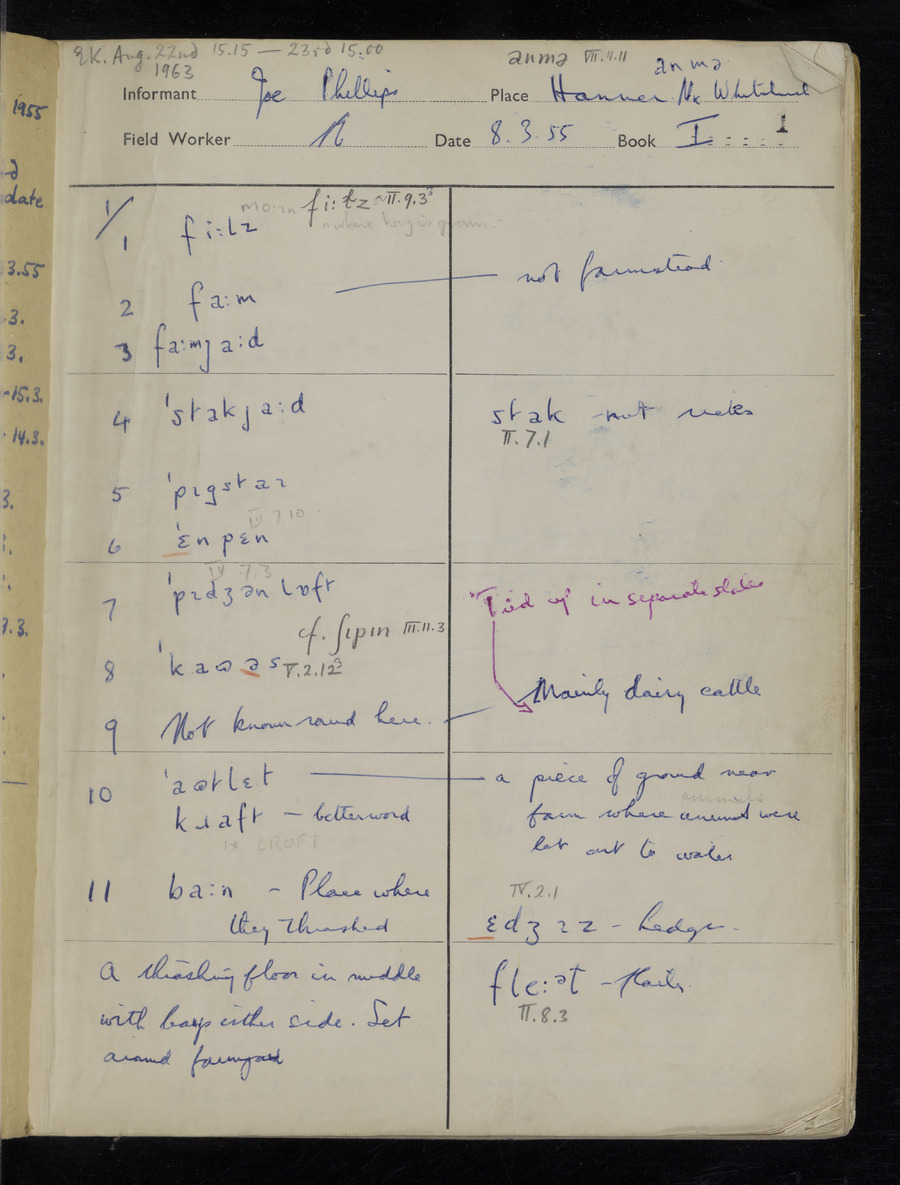 EK. Aug. 22nd 15.15 — 23rd 15.00
1963
anmə VII.4.11
anmə
Informant Joe Phillips Place Hanmer Nr Whitchurch
Field Worker Date 8.3.55 Book I 1
1955
date
3.55
3.
3.
-15.3.
14.3.
3.
7.3.
1/
fi:ɫz ~ II.9.3³
"where hay is grown"
1 fi:lz
2 fa:m — not farmstead
3 fa:mja:d
4 ˈstakja:d stak not ricks
II.7.1
5 ˈpɪgstaɪ
III 7.10
6 ˈɛnpɛn
IV 7.3
7 ˈpɪdʒənlɒft "Tied up in separate stalls
cf. ʃɪpɪn III.11.3
8 ˈkaʊəs V.2.12³
Mainly dairy cattle
9 Not known round here.
10 ˈaʊtlɛt — a piece of ground near
kɹaft — better word farm where animals were
animals
ie. CROFT
let out to water
11 ba:n - Place where
they thrashed
IV.2.1
ɛdʒɪz - hedges.
A thrashing floor in middle
with bays either side. Set
around farmyard
fle:ət - flails.
II.8.3